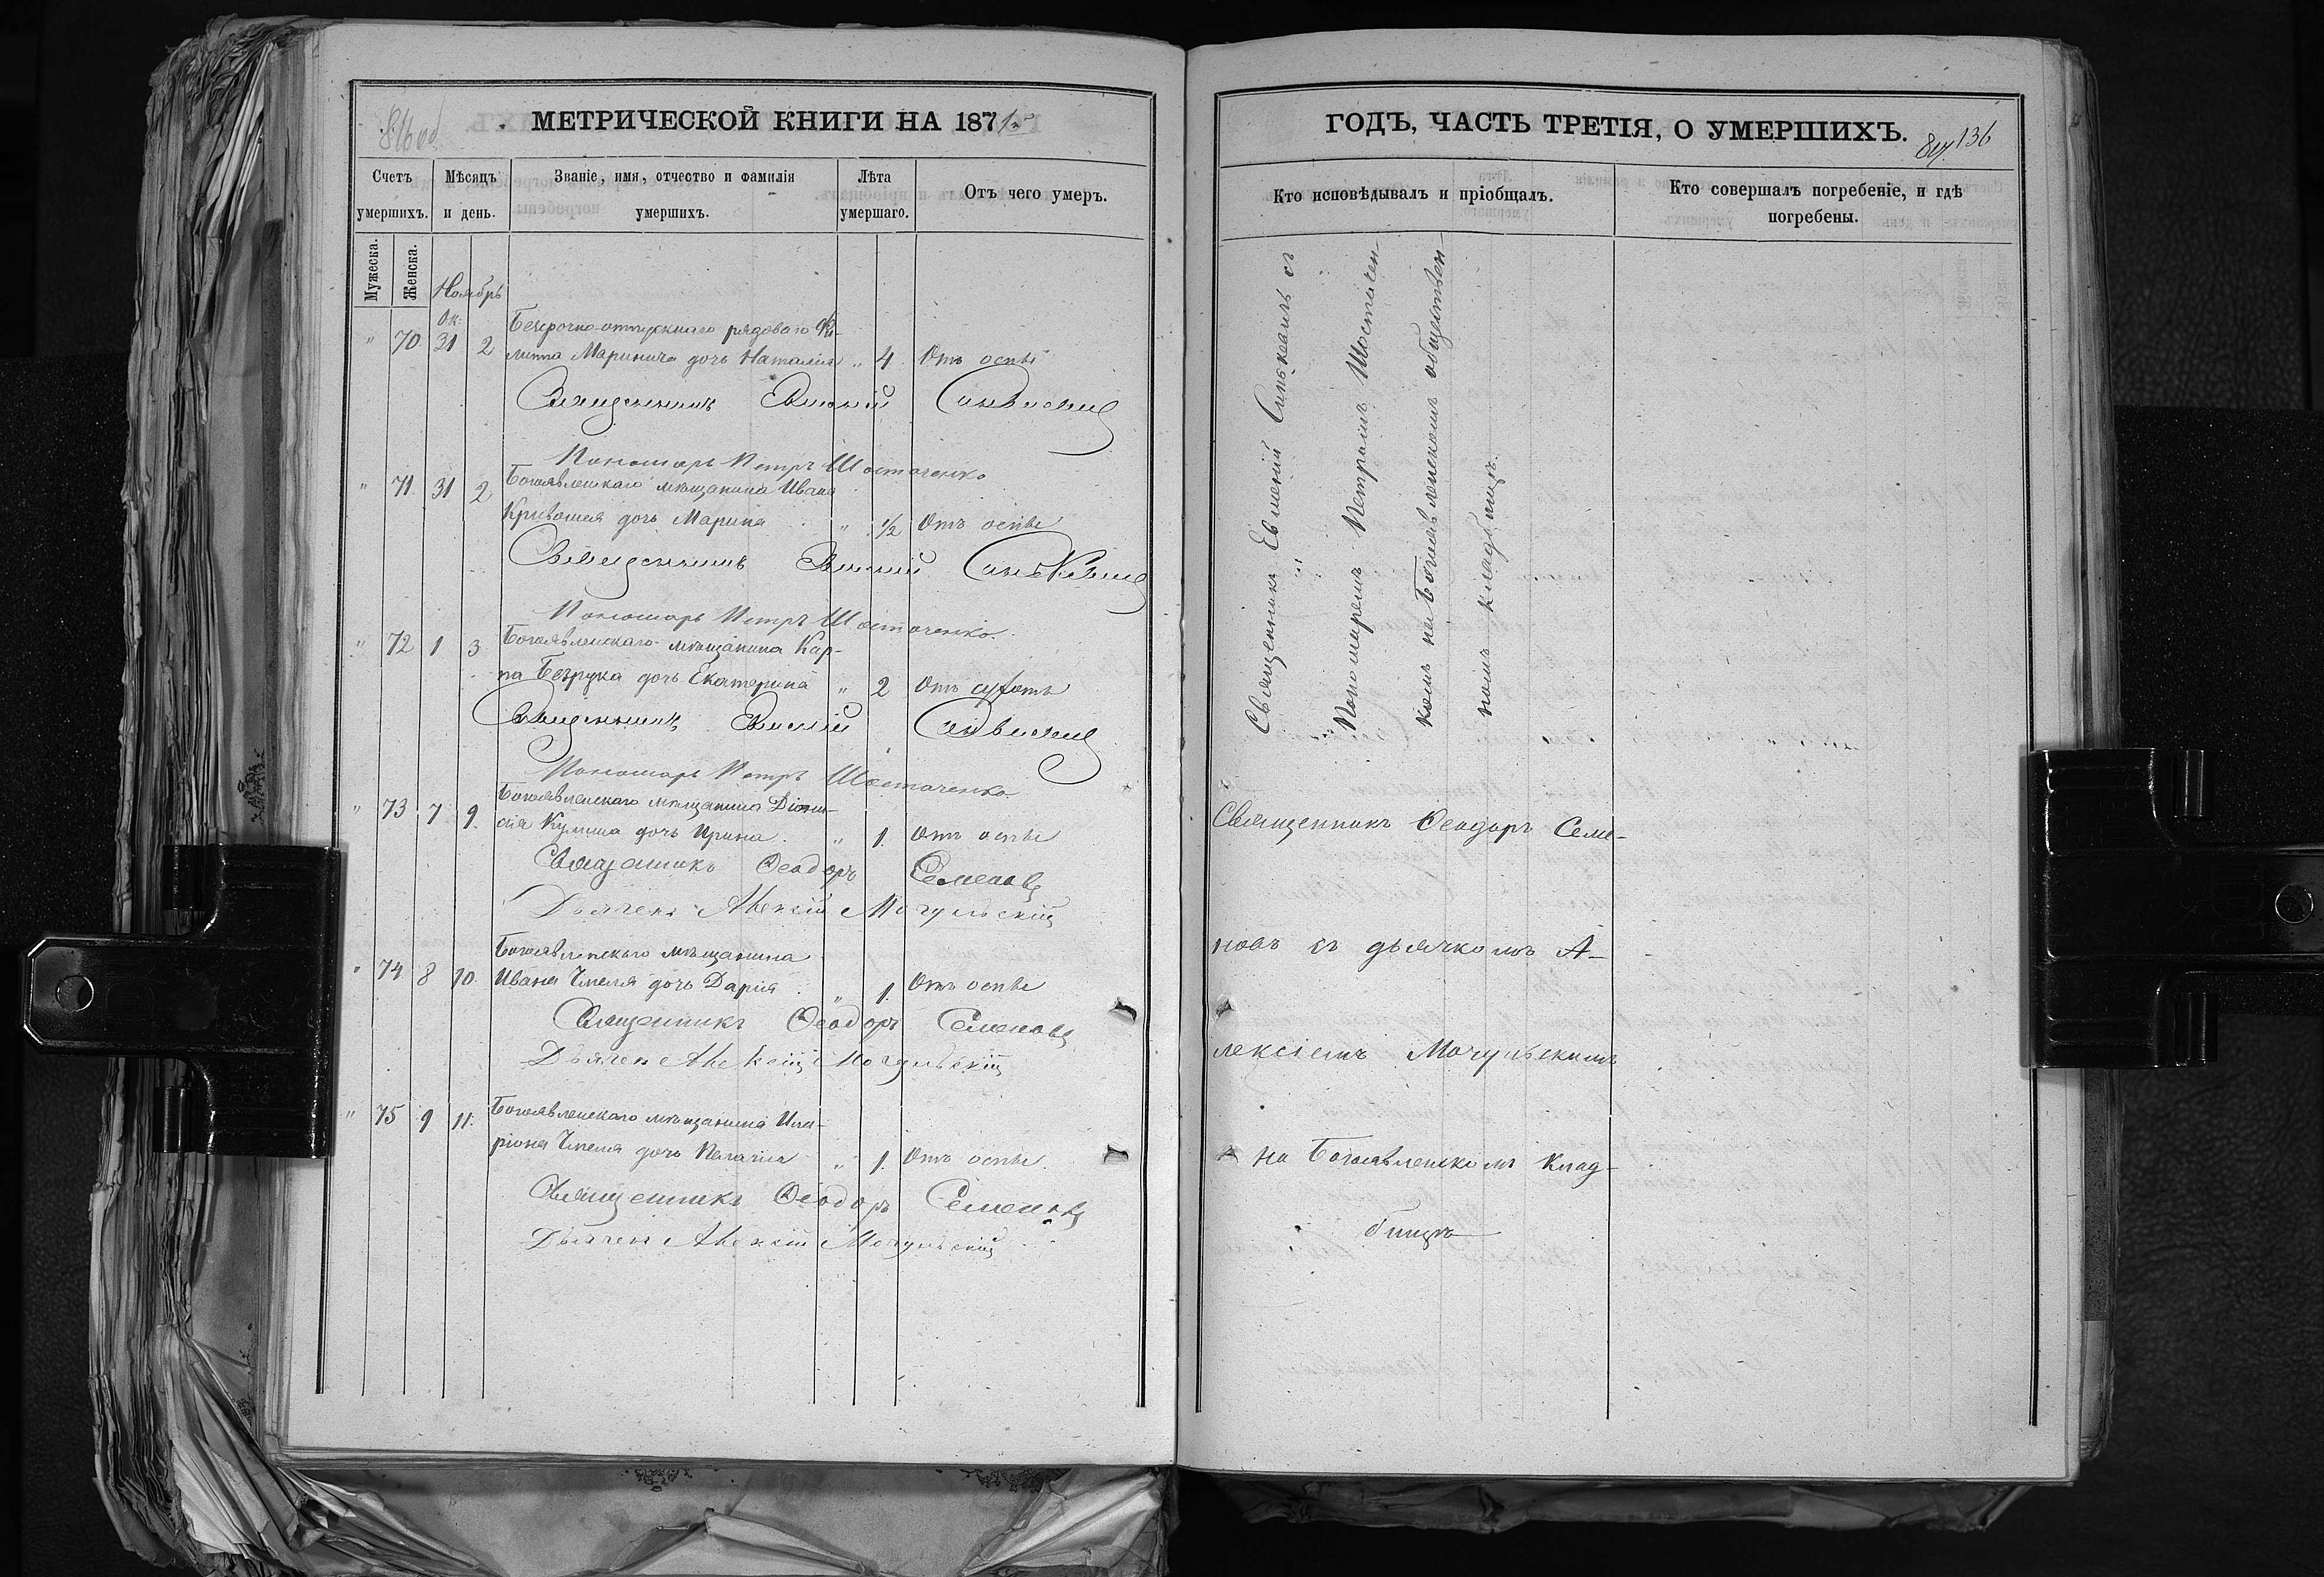 816 об
МЕТРИЧЕСКОЙ КНИГИ НА 1871й
Счетъ умершихъ.
Мѣсяцъ и день.
Званіе, имя, отчество и фамилія умершихъ.
Лѣта умершаго.
Отъ чего умеръ.
Мужеска.
Женска.
Ноябрь
Ок:
Безсрочно-отпускнаго рядоваго Фи-
" 70 31 2 липпа Маринича дочь Наталія " 4 Отъ оспы
Священникъ Евмений Синькевичъ
Пономарь Петръ Шостаченко
" 71 31 2 Богоявленскаго мѣщанина Ивана
Кривошея дочь Марина " 1/2 Отъ оспы
Священникъ Евмений Синькевичъ
Пономарь Петръ Шостаченко
" 72 1 3 Богоявленскаго мѣщанина Кар-
па Безрука дочь Екатерина " 2 Отъ сухотъ
Священникъ Евмений Синькевичъ
Пономарь Петръ Шостаченко
" 73 7 9 Богоявленскаго мѣщанина Діони-
сія дочь Ирина " 1. Отъ оспы
Священникъ Ѳеодоръ Семеновъ
Дьячекъ Алексій Мочульскій
Богоявленскаго мѣщанина
" 74 8 10. Ивана Чмеля дочь Дарія " 1. Отъ оспы
Священникъ Ѳеодоръ Семеновъ
Дьячекъ Алексій Мочульскій
" 75 9 11. Богоявленскаго мѣщанина Ила-
ріона Чмеля дочь Пелагія " 1. Отъ оспы.
Священникъ Ѳеодоръ Семеновъ
Дьячекъ Алексій Мочульскій
ГОДЪ, ЧАСТЬ ТРЕТІЯ, О УМЕРШИХЪ.
136
Кто исповѣдывалъ и пріобщалъ.
Кто совершалъ погребеніе, и гдѣ погребены.
Священникъ Евмений Синькевичъ съ
Пономаремъ Петромъ Шостачен-
комъ на Богоявленскомъ обществен-
номъ кладбищѣ.
Священникъ Ѳеодоръ Семе-
новъ съ дьячкомъ А-
лексіемъ Мочульскимъ
на Богоявленскомъ клад-
бищѣ